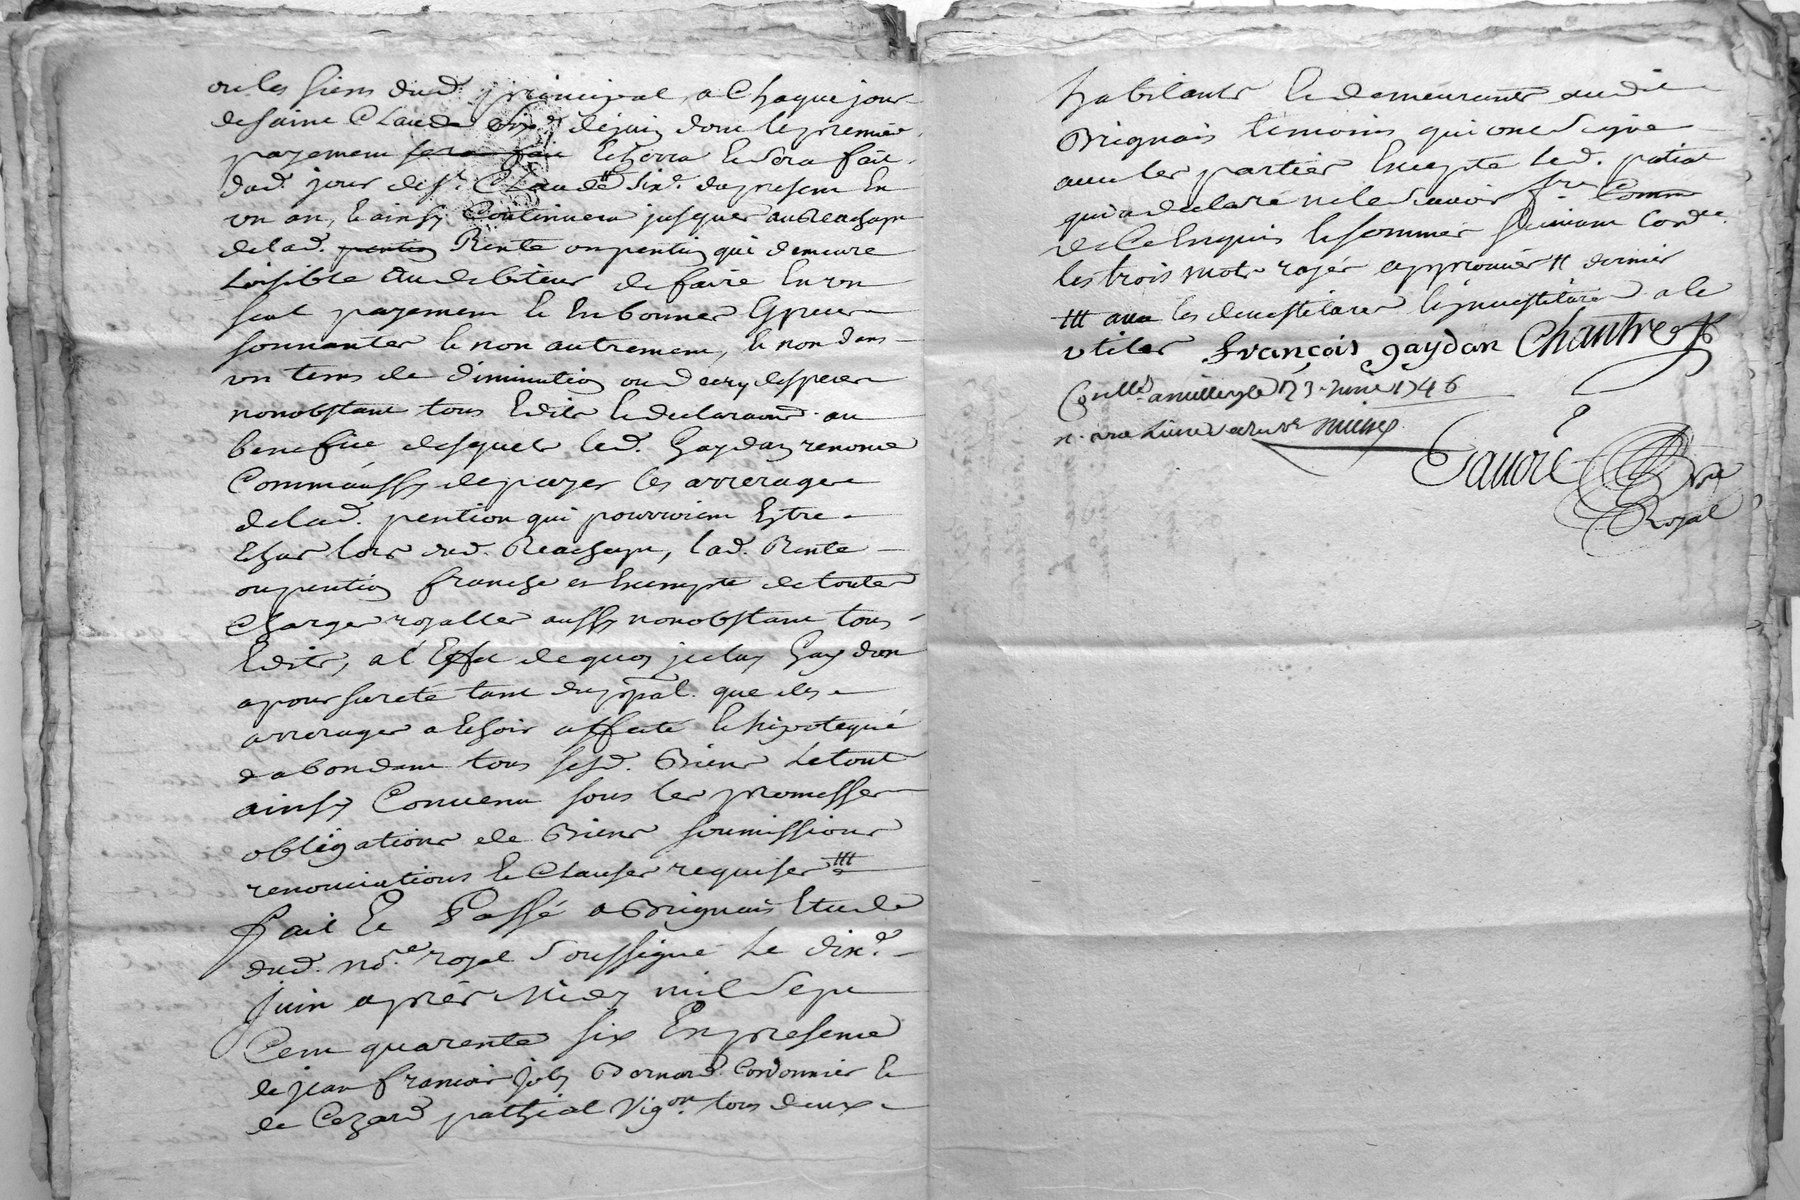 ou les siens dud. principal, a Chaque jour
de saint Claude six.e de juin dont le premier
payement sera fait Echerra Et sera fait
dud. jour de St. Claude six.e du present En
un an, Et ainsy Continuera jusques au Reachapt
de lad. pention Rente ou pention qui demeure
Loisible Au debiteur de faire En un
seul payement Et En bonnes Especes
sonnantes Et non autrement, Et non dans
un tems de diminution ou decry despeces
nonobstant tous Edits Et declaraons. au
benefice desquels led. Gaydan renonce
Comme aussy de payer les arrerages
de lad. pention qui pourroient Estre
Echus lors dud. Reachapt, lad. Rente
ou pention franche et Exempte de toutes
Charges royalles aussy nonobstant tous
Edits, a l'Effet de quoy jceluy Gaydon
a pour sureté tant du ppal. que des
arrerages a Echoir affecté Et hipotequé
d abondant tous sesd. Biens Le tout
ainsy Convenu sous les promesses
obligations de Biens soumissions
renonciations Et Clauses requises ttt
fait Et Passé a Brignais Etude
dud. no.re royal Soussigné Le dix.e
juin après Midy mil Sept
Cent quarente six En presence
de jean francois joly Bernard Cordonnier Et
de Cezard pathial Vig.on tous deux
habitants Et demeurants audit
Brignais temoins qui ont Signé
avec les parties Excepté led. patial
qui a declaré ne le Scavoir fre Comm
de Ce Enquis Et sommés Suivant l'ord.ce
les trois mots rayés approuvés tt dernier
ttt avec les devestitures Et jnvestitures a Ce
utiles françois gaydan Chantre
Conllé a millery le 23 Juin 1746
Favre
no.re
Royal